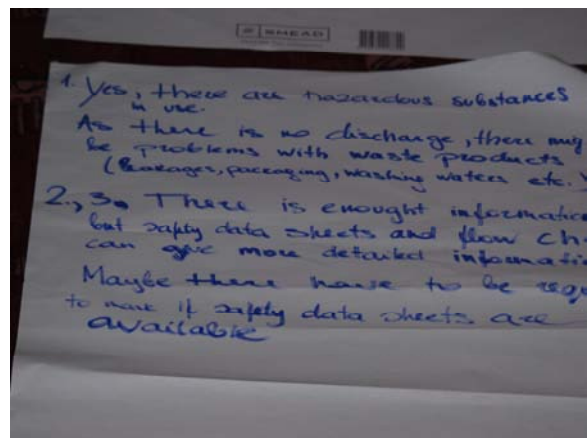 SMEAD
1. Yes, there are hazardous substances
in use.
As there is no discharge, there may
be problems with waste products
(Leakages, packaging, washing waters etc.)
2., 3. There is enought informatio
but safty data sheets and flow ch
can give more detailed informati
Maybe there have to be
to mark if safty data sheets are
available